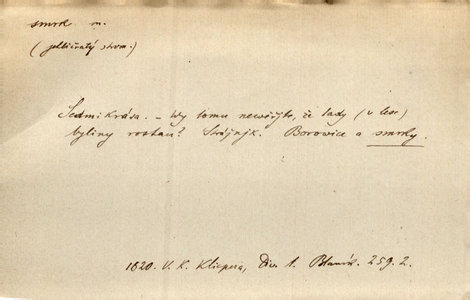 smrk m.
(jehličnatý strom.)
Sedmikrása. – Wy tomu newěřjte, že tady (v lese)
byliny rostau? Strážnjk. Borowice a smrky.
1820. V. K. Klicpera, Div. 1. Blaník. 259. 2.